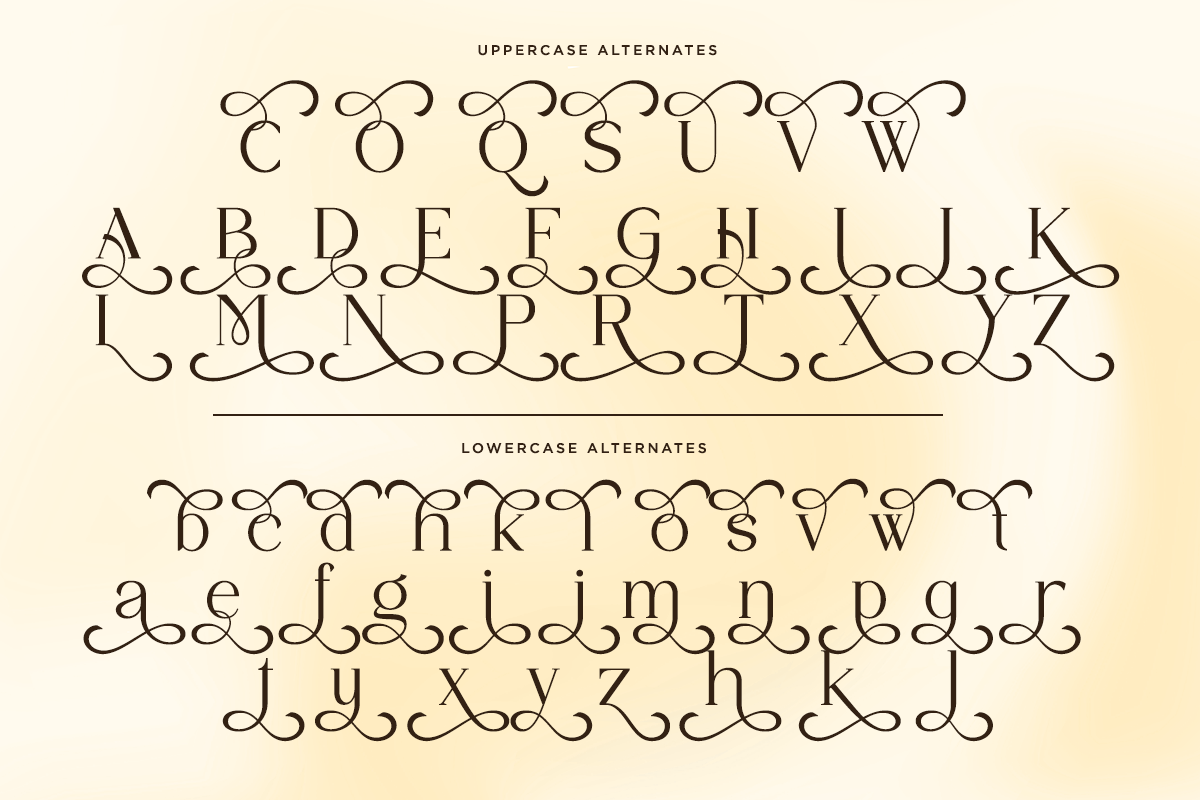 UPPERCASE ALTERNATES
C O Q S U V W
A B D E F G H I J K
L M N P R T X Y Z
LOWERCASE ALTERNATES
b c d h k l o s v w t
a e f g i j m n p q r
t y x y z h k l